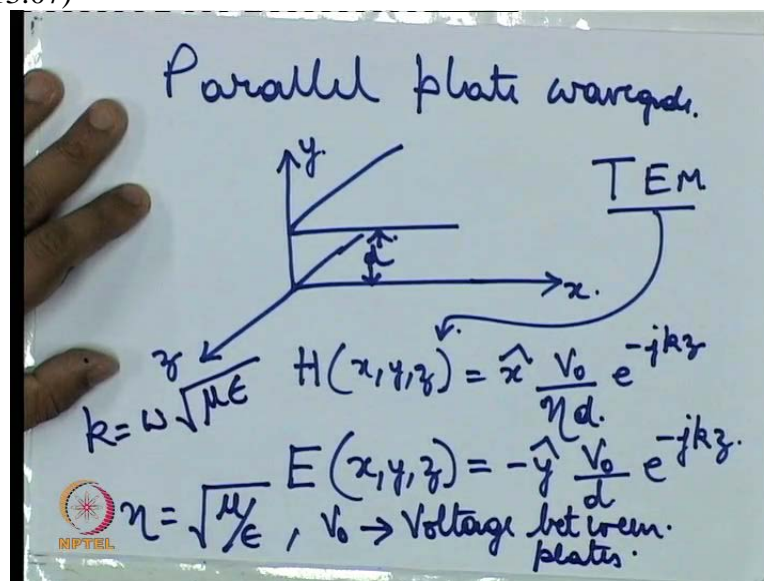 13:07)
Parallel plate waveguide.
y.
TEM
d
x.
z
H(x,y,z) = x̂ V₀/ηd. e^-jkz
k = ω√με
E(x,y,z) = -ŷ V₀/d e^-jkz.
η = √μ/ε , V₀ → Voltage between.
plates.
NPTEL